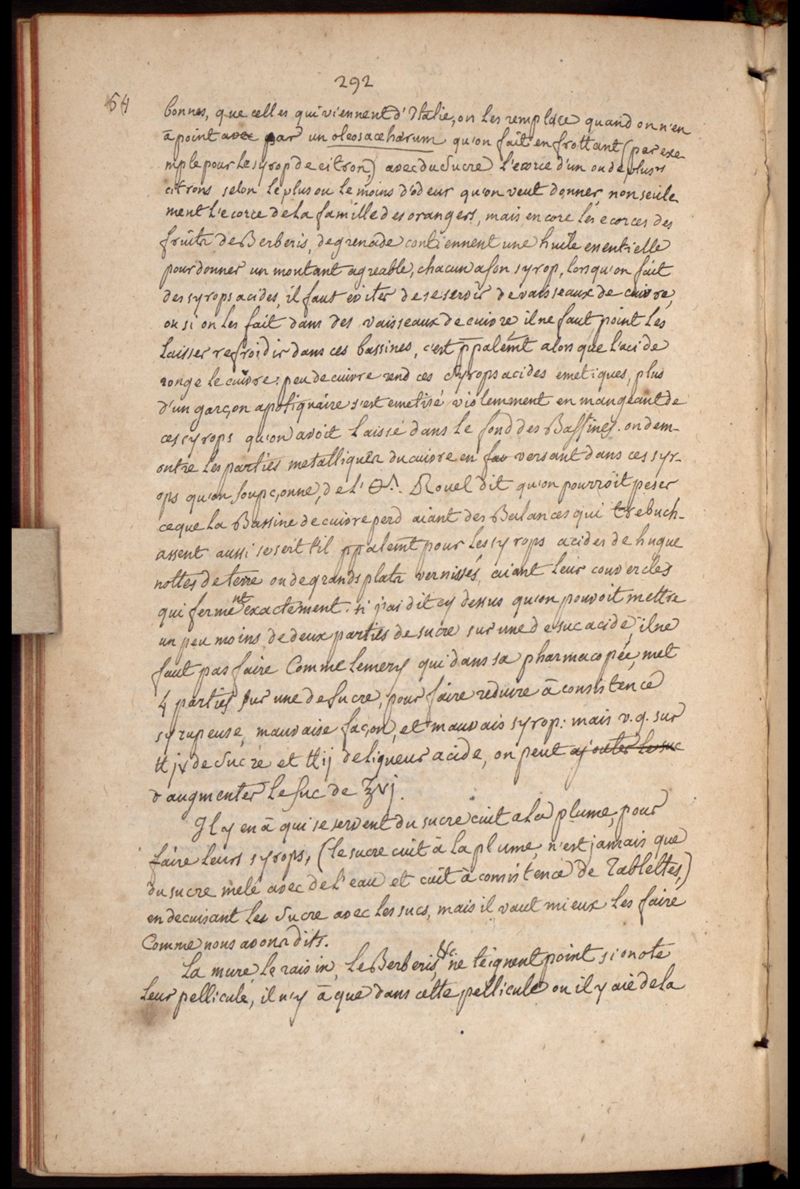 292
64
bonnes, que celles qui viennent d'Italie, on les remplace quand on n'en
à point avec par un oleosaccharum qu'on fait en frottant (par exe
mple pour le syrop de citron) avec du sucre l'ecorce d'un ou de plusrs
citrons selon le plus ou le moins d'odeur qu'on veut donner, non seule
ment l'ecorce de la famille des orangers, mais encore les ecorces des
fruits de Berberis, de grenade contiennent une huile essentielle
pour donner un montant agreable, chacun a son syrop, lorsqu'on fait
des syrops acides, il faut eviter de se servir de vaisseaux de cuivre,
ou si on les fait dans des vaisseaux de cuivre, il ne faut point les
laisser refroidir dans ces bassines, c'est ppalemt alors que l'acide
ronge le cuivre: peu de cuivre rend ces syrops acides emetiques, plus
d'un garçon apotiquaire s'est emetisé violemment en mangeant de
ces syrops qu'on avoit laissé dans le fond des Bassines. on dem-
ontre les parties metalliques du cuivre en versant dans ces syr-
ops qu'on soupçonne, de l' Rouel dit qu'on pourroit peser
ce que la Bassine de cuivre perd aiant des Balances qui trebuch-
assent aussi se sert til ppalemt pour les syrops acides de hugue
nottes de terre ou de grands plats vernissés, aiant leur couvercles
qui ferment exactement. si j'ai dit cy dessus qu'on pouvoit mettre
un peu moins de deux parties de sucre sur une de suc acide, il ne
faut pas faire comme Lemery qui dans sa pharmacopée, met
4 parties sur une de sucre, pour faire reduire à consistence
syrupeuse, mauvaise façon, et mauvais syrop: mais v.g. sur
℔ jv de sucre et ℔ ij de liqueur acide, on peut ajouter le suc
d augmenter le suc de ℥vj.
Il y en à qui se servent du sucre cuit a la plume, pour
faire leurs syrops, (le sucre cuit à la plume, n'est jamais que
du sucre melé avec de l'eau et cuit à consistence de Tablettes,)
en decuisant le sucre avec les sucs, mais il vaut mieux les faire
Comme nous avons dits.
La mure, le raisin, le Berberis, &c ne teignent point si on ote
leur pellicule, il n'y à que dans cette pellicule ou il y aie de la